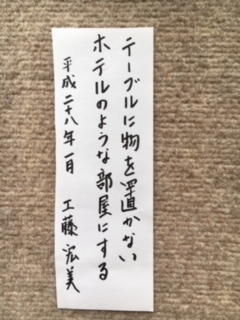 テーブルに物を置かない
ホテルのような部屋にする
平成二十八年一月 工藤宏美